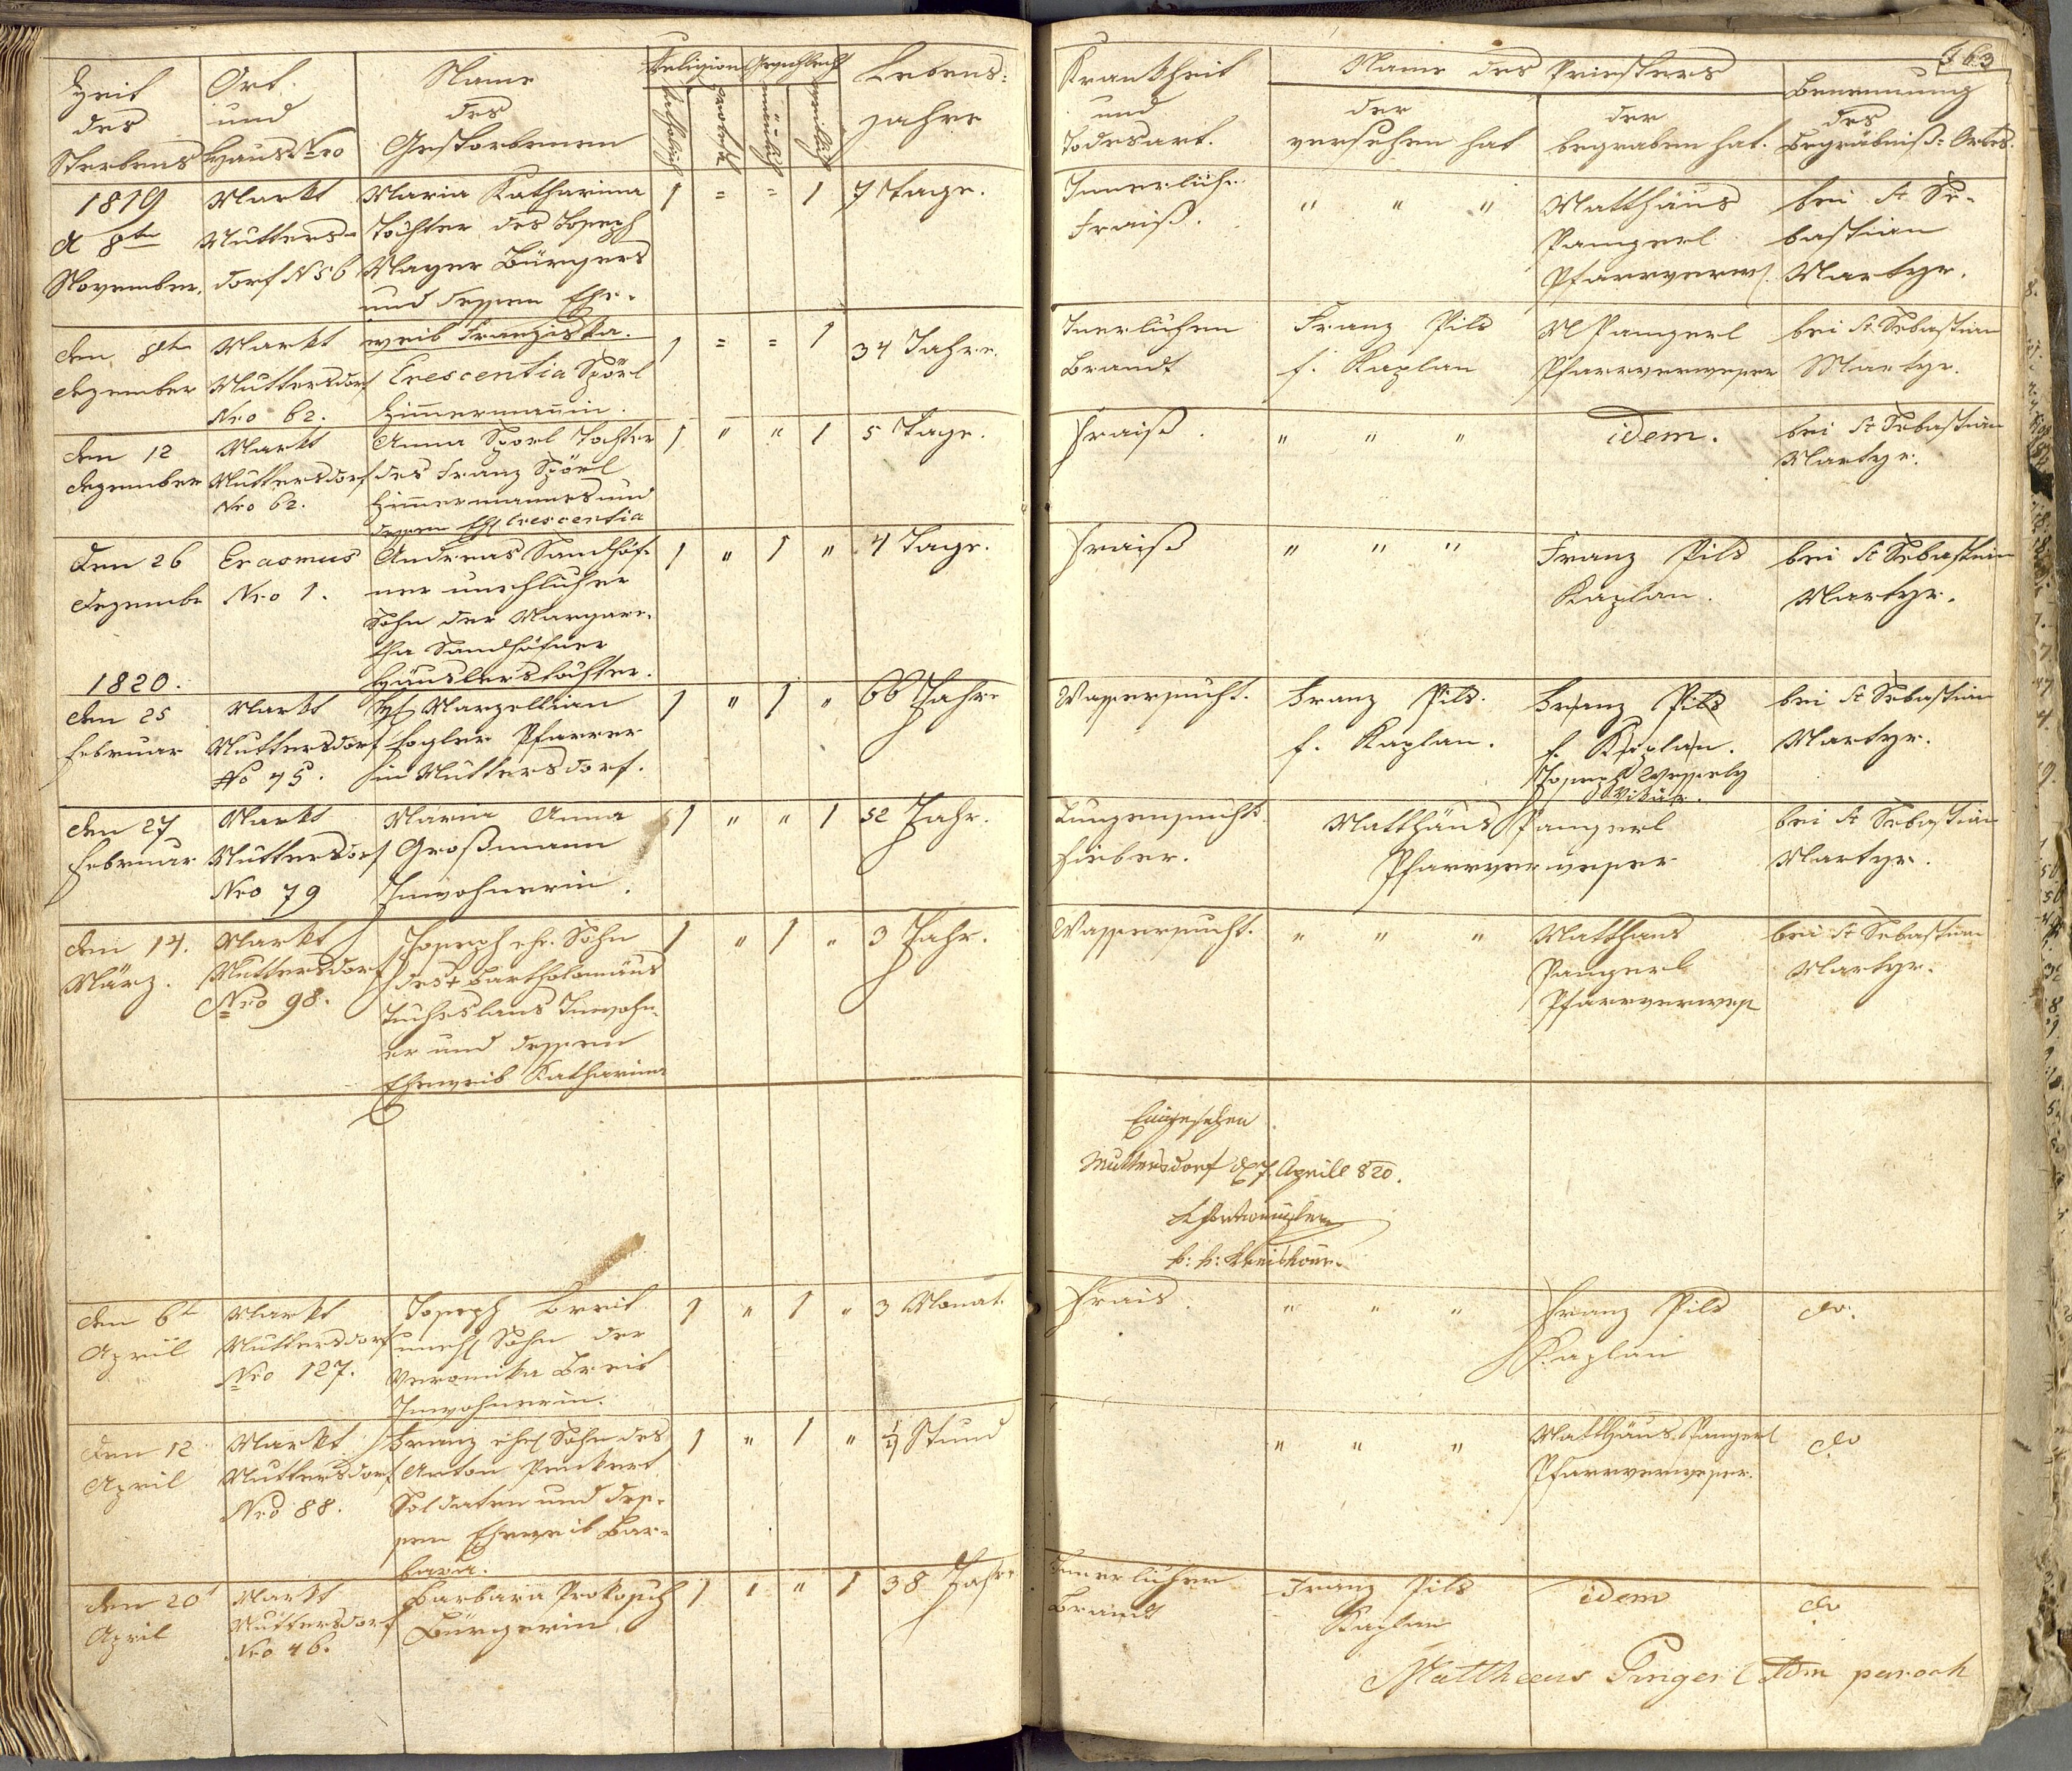 363
Zeit des Sterbens
Ort und Haus Nro
Name des Gestorbenen
Religion
katholisch
Geschlecht
männlich
weiblich
Lebens=
Jahre
Krankheit und Todesart.
Name des Priesters
der versehen hat
der begraben hat.
Benennung des Begräbniß=Ortes.
1819
d 8te
November.
Markt
Mutters=
dorf N 56
Maria Katharina
Tochter des Joseph
Mayer Bürgers
und dessen Ehe=
weib Franziska.
1 = = 1
7 Tage.
Innerliche
Fraiß.
" " "
Matthäus
Pangerl
Pfarrverw.
bei St Se=
bastian
Martyr.
den 8te
Dezember
Markt
Muttersdorf
Nro 62.
Crescentia Spörl
Zimmermannin.
1 = = 1
34 Jahre.
Inerlichen
Brandt
Franz Pils
f. Kaplan
M Pangerl
Pfarrverweser
bei St Sebastian
Martyr.
den 12
Dezember
Markt
Muttersdorf
Nro 62.
Anna Spörl Tochter
des Franz Spörl
Zimmermannes und
dessen Eh Crescentia
1 " " 1
5 Tage.
Fraiß.
" " "
idem.
bei St Sebastian
Martyr.
Den 26
Dezembe
Erasmus
Nro 1.
Andreas Sandhöf=
ner unehlicher
Sohn der Margare=
tha Sandhöfner
Häuslerstochter.
1 " 1 "
4 Tage.
Fraiß
" " "
Franz Pils
Kaplan.
bei St Sebastian
Martyr.
1820.
den 25
Februar
Markt
Muttersdorf
No 75.
H Marzellian
Fogler Pfarrer
in Muttersdorf.
1 " 1 "
66 Jahre
Wassersucht.
Franz Pils.
f. Kaplan.
Franz Pils
f. Kaplan.
Joseph Wessely
Vikär.
bei St Sebastian
Martyr.
den 27
Februar
Markt
Muttersdorf
Nro 79
Maria Anna
Großmann
Inwohnerin.
1 " " 1
52 Jahr.
Lungensucht
Fieber.
Matthäus Pangerl
Pfarrverweser
bei St Sebastian
Martyr.
den 14.
März.
Markt
Muttersdorf
Nro 98.
Joseph ehe. Sohn
des + Bartholomäus
Inwohn=
er und dessen
Eheweib Katharina
1 " 1 "
3 Jahr.
Wassersucht.
" " "
Matthäus
Pangerl
Pfarrverwes
bei St Sebastian
Martyr.
Eingesehen
Muttersdorf d 7. Aprill 820.
k: k: Kreiskom.
den 6t
April
Markt
Muttersdorf
Nro 127.
Joseph Breit
uneh Sohn der
Veronika Breit
Inwohnerin.
1 " 1 "
3 Monat.
Frais.
" " "
Franz Pils
Kaplan
do.
Den 12
April
Markt
Muttersdorf
Nro 88.
Franz ehe Sohn des
Anton Penkert
Soldaten und des=
sen Eheweib Bar=
bara.
1 " 1 "
1/4 Stund
" " "
Matthäus Pangerl
Pfarrverweser.
do
den 20t
April
Markt
Muttersdorf
Nro 46.
Barbara Prokopich
Bürgerin
1 " " 1
38 Jahre
Innerlichen
Brandt
Franz Pils
Kaplan
idem
do
Mattheeus Pangerl Adm paroch